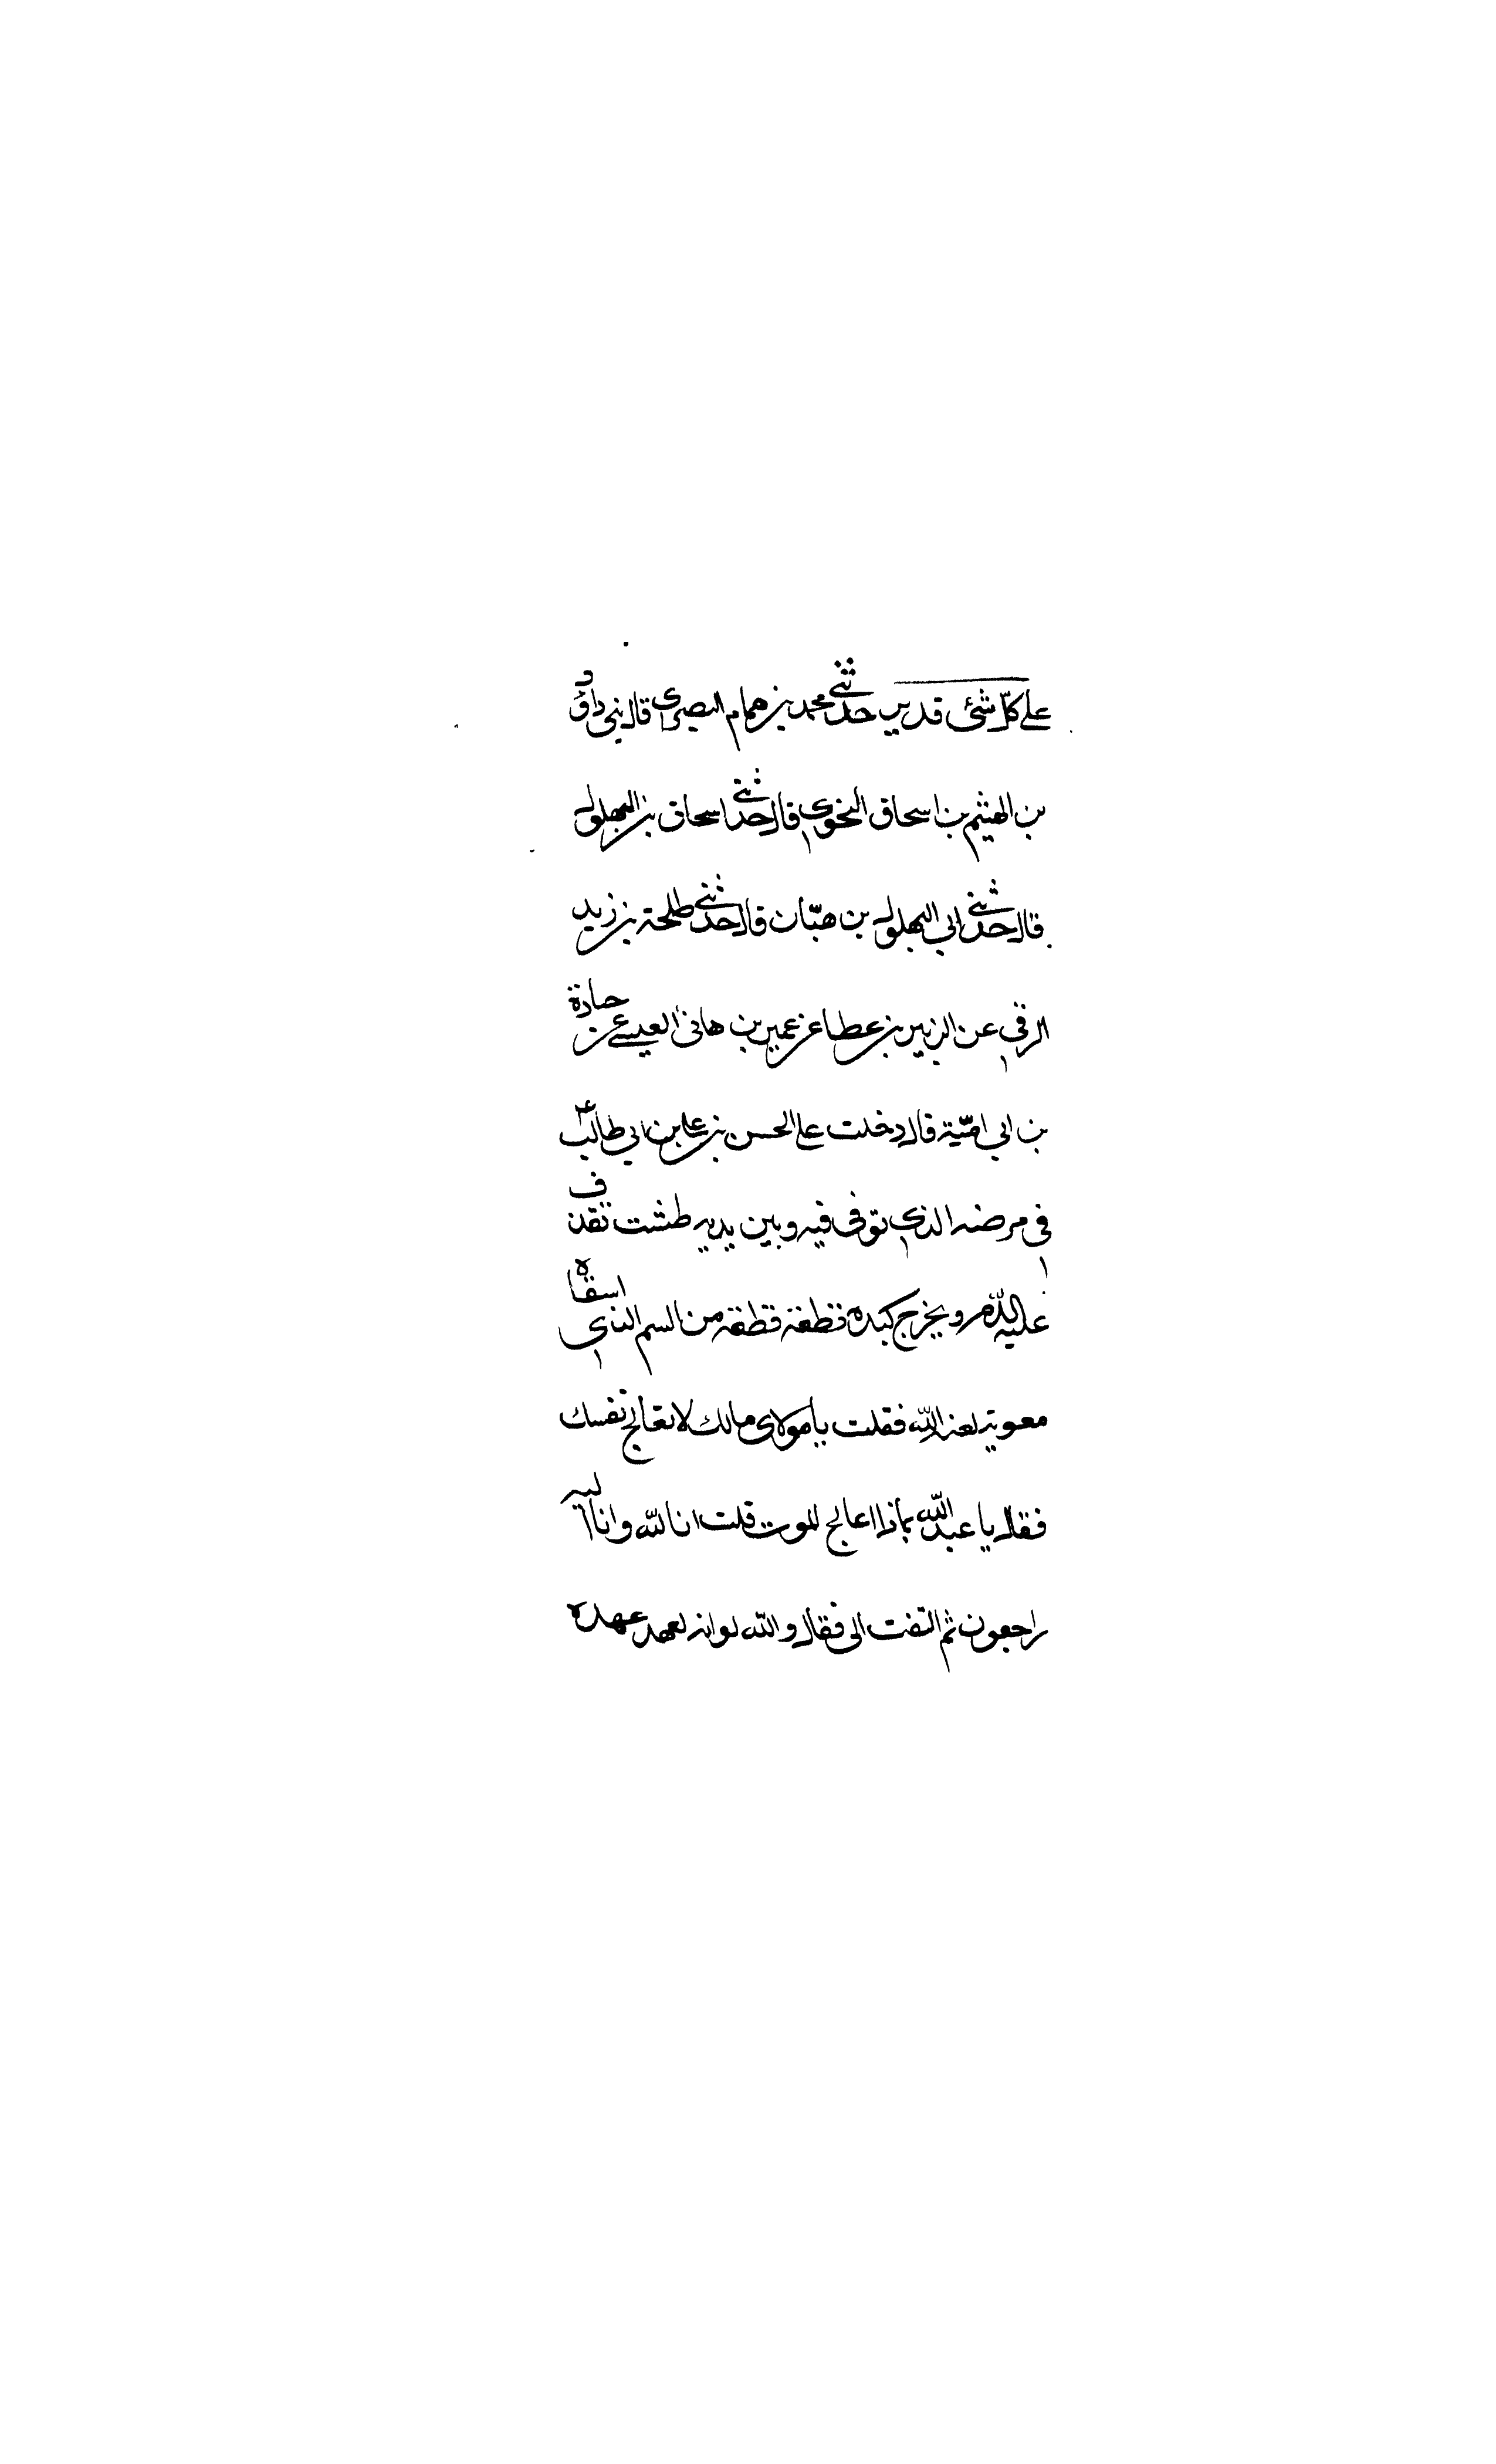 على كلّ شئ قدير حدثني محمد بن همام البصرى قال بنى داود
بن الهيثم بن اسحاق النحوي قال حدثني اسحاق بن البهلول
قال حدثني ابي البهلول بن هبّان قال حدثني طلحة بن زيد
الرقي عن الزبير بن عطا عن عمير بن هانئ العبسي عن جنادة
بن ابي اميّة قال دخلت على الحسن بن علي بن ابي طالب ع
في مرضه الذي توفى فيه وبين يديه طشت تقذف
عليه الدم ويخرج كبده قطعة قطعة من السم الذي اسقاه
معوية لعنه الله فقلت يا مولاى مالك لا تعالج نفسك
فقال يا عبد الله بماذا اعالج الموت قلت انا لله وانا اليه
راجعون ثم التفت الى فقال والله لوانه لعهد عهده